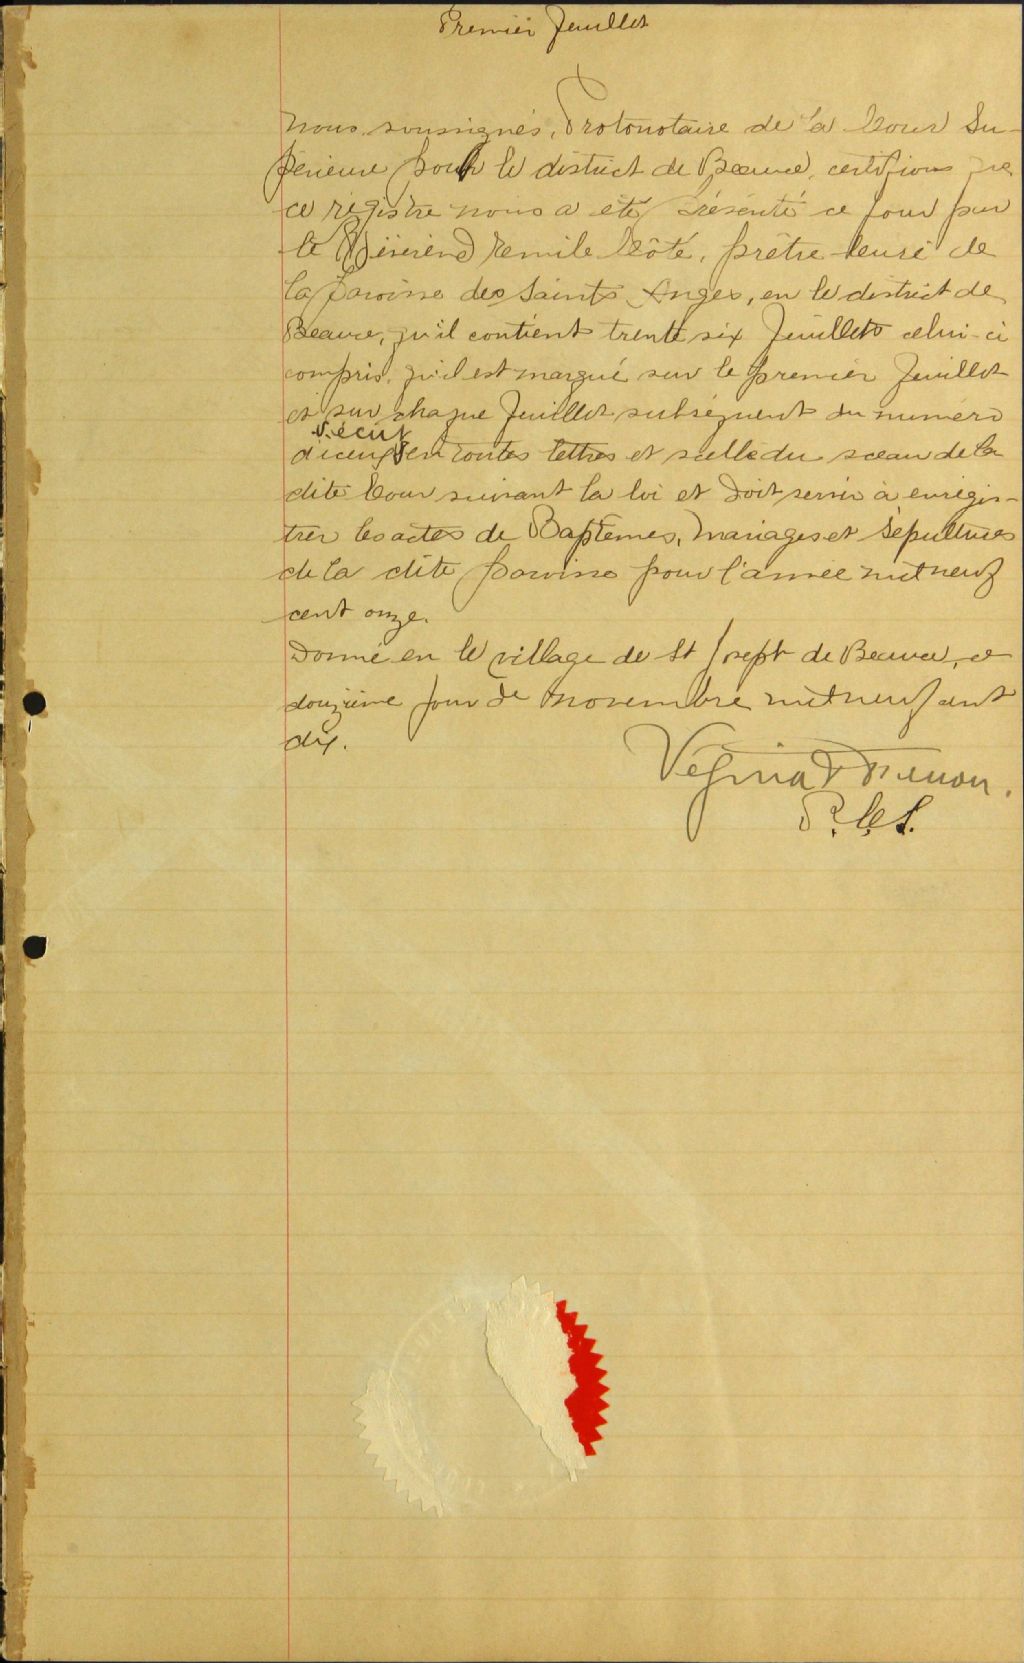 Premier feuillet
Nous, soussignés, Protonotaire de la Cour Su-
périeure pour le district de Beauce, certifions que
ce régistre nous a été présenté ce jour par
le Révérend Emile Côté, prêtre curé de
la paroisse des Saints Anges, en le district de
Beauce, qu'il contient trente six feuillets celui-ci
compris, qu'il est marqué sur le premier feuillet
et sur chaque feuillet subséquent du numéro
d'iceux écrit en toutes lettres et scellé du sceau de la
dite Cour suivant la loi et doit servir à enrégis-
trer les actes de Baptêmes, Mariages et Sépultures
de la dite paroisse pour l'année mil neuf
cent onze.
Donné en le village de St Joseph de Beauce, ce
douzième jour de Novembre mil neuf cent
dix.
Vézina &
P.C.S.